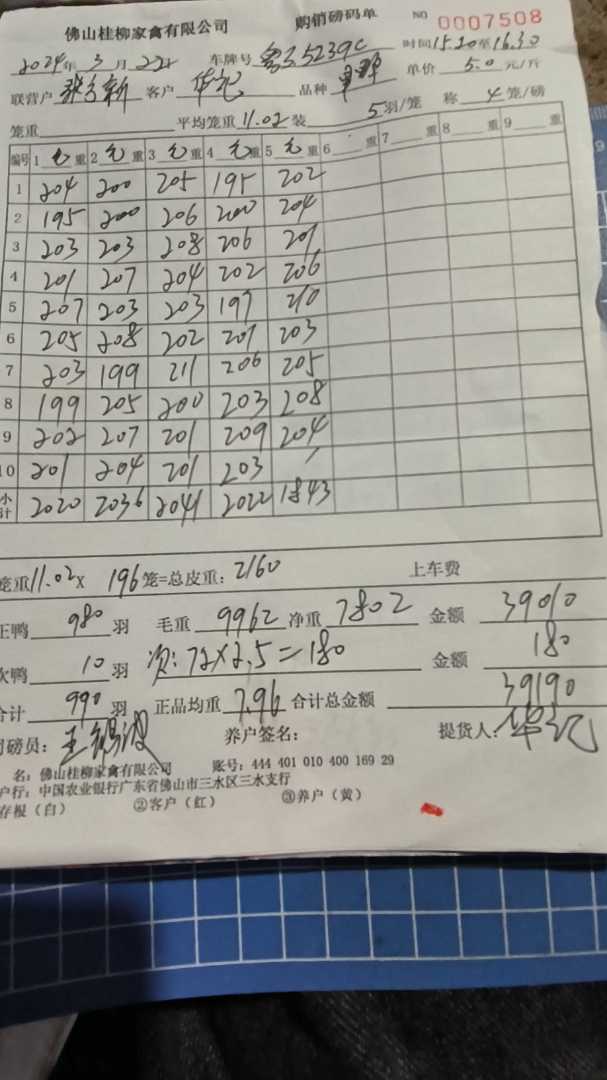 佛山桂柳家禽有限公司 购销磅码单 NO 0007508
2024年3月22日 车牌号 粤J5239C 时间15.20至16.30
联营户 新 客户 华记 品种 单价 5.0 元/斤
笼重 平均笼重 11.02 装 5 羽/笼 称 4 笼/磅
编号 1 毛 重 2 毛 重 3 毛 重 4 毛 重 5 毛 重 6 重 7 重 8 重 9 重
1 204 200 205 195 202
2 195 200 206 200 204
3 203 203 208 206 201
4 201 207 204 202 206
5 207 203 203 197 210
6 205 208 202 201 203
7 203 199 211 206 205
8 199 205 200 203 208
9 202 207 201 209 204
10 201 204 201 203 /
小计 2020 2036 2041 2022 1843
笼重11.02X 196笼=总皮重：2160 上车费
正鸭 980 羽 毛重 9962 净重 7802 金额 39010
次鸭 10 羽 次:72×2.5=180 金额 180
合计 990 羽 正品均重 7.96 合计总金额 39190
司磅员： 王锡波 养户签名： 提货人：华记
名：佛山桂柳家禽有限公司 账号：444 401 010 400 169 29
户行：中国农业银行广东省佛山市三水区三水支行
存根（白） ②客户（红） ③养户（黄）